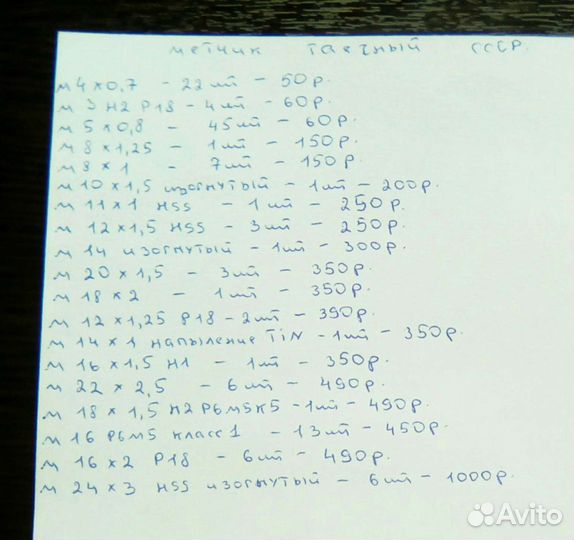 метчик гаечный СССР.
м 4×0,7 - 22 шт - 50 р.
м 3 H2 P18 - 4 шт - 60 р.
м 5×0,8 - 45 шт - 60 р.
м 8×1,25 - 1 шт - 150 р.
м 8×1 - 7 шт - 150 р.
м 10×1,5 изогнутый - 1 шт - 200 р.
м 11×1 HSS - 1 шт - 250 р.
м 12×1,5 HSS - 3 шт - 250 р.
м 14 изогнутый - 1 шт - 300 р.
м 20×1,5 - 3 шт - 350 р.
м 18×2 - 1 шт - 350 р.
м 12×1,25 P18 - 2 шт - 390 р.
м 14×1 напыление TiN - 1 шт - 350 р.
м 16×1,5 H1 - 1 шт - 350 р.
м 22×2,5 - 6 шт - 490 р.
м 18×1,5 H2 P6M5K5 - 1 шт - 490 р.
м 16 P6M5 класс 1 - 13 шт - 450 р.
м 16×2 P18 - 6 шт - 490 р.
м 24×3 HSS изогнутый - 6 шт - 1000 р.
Avito